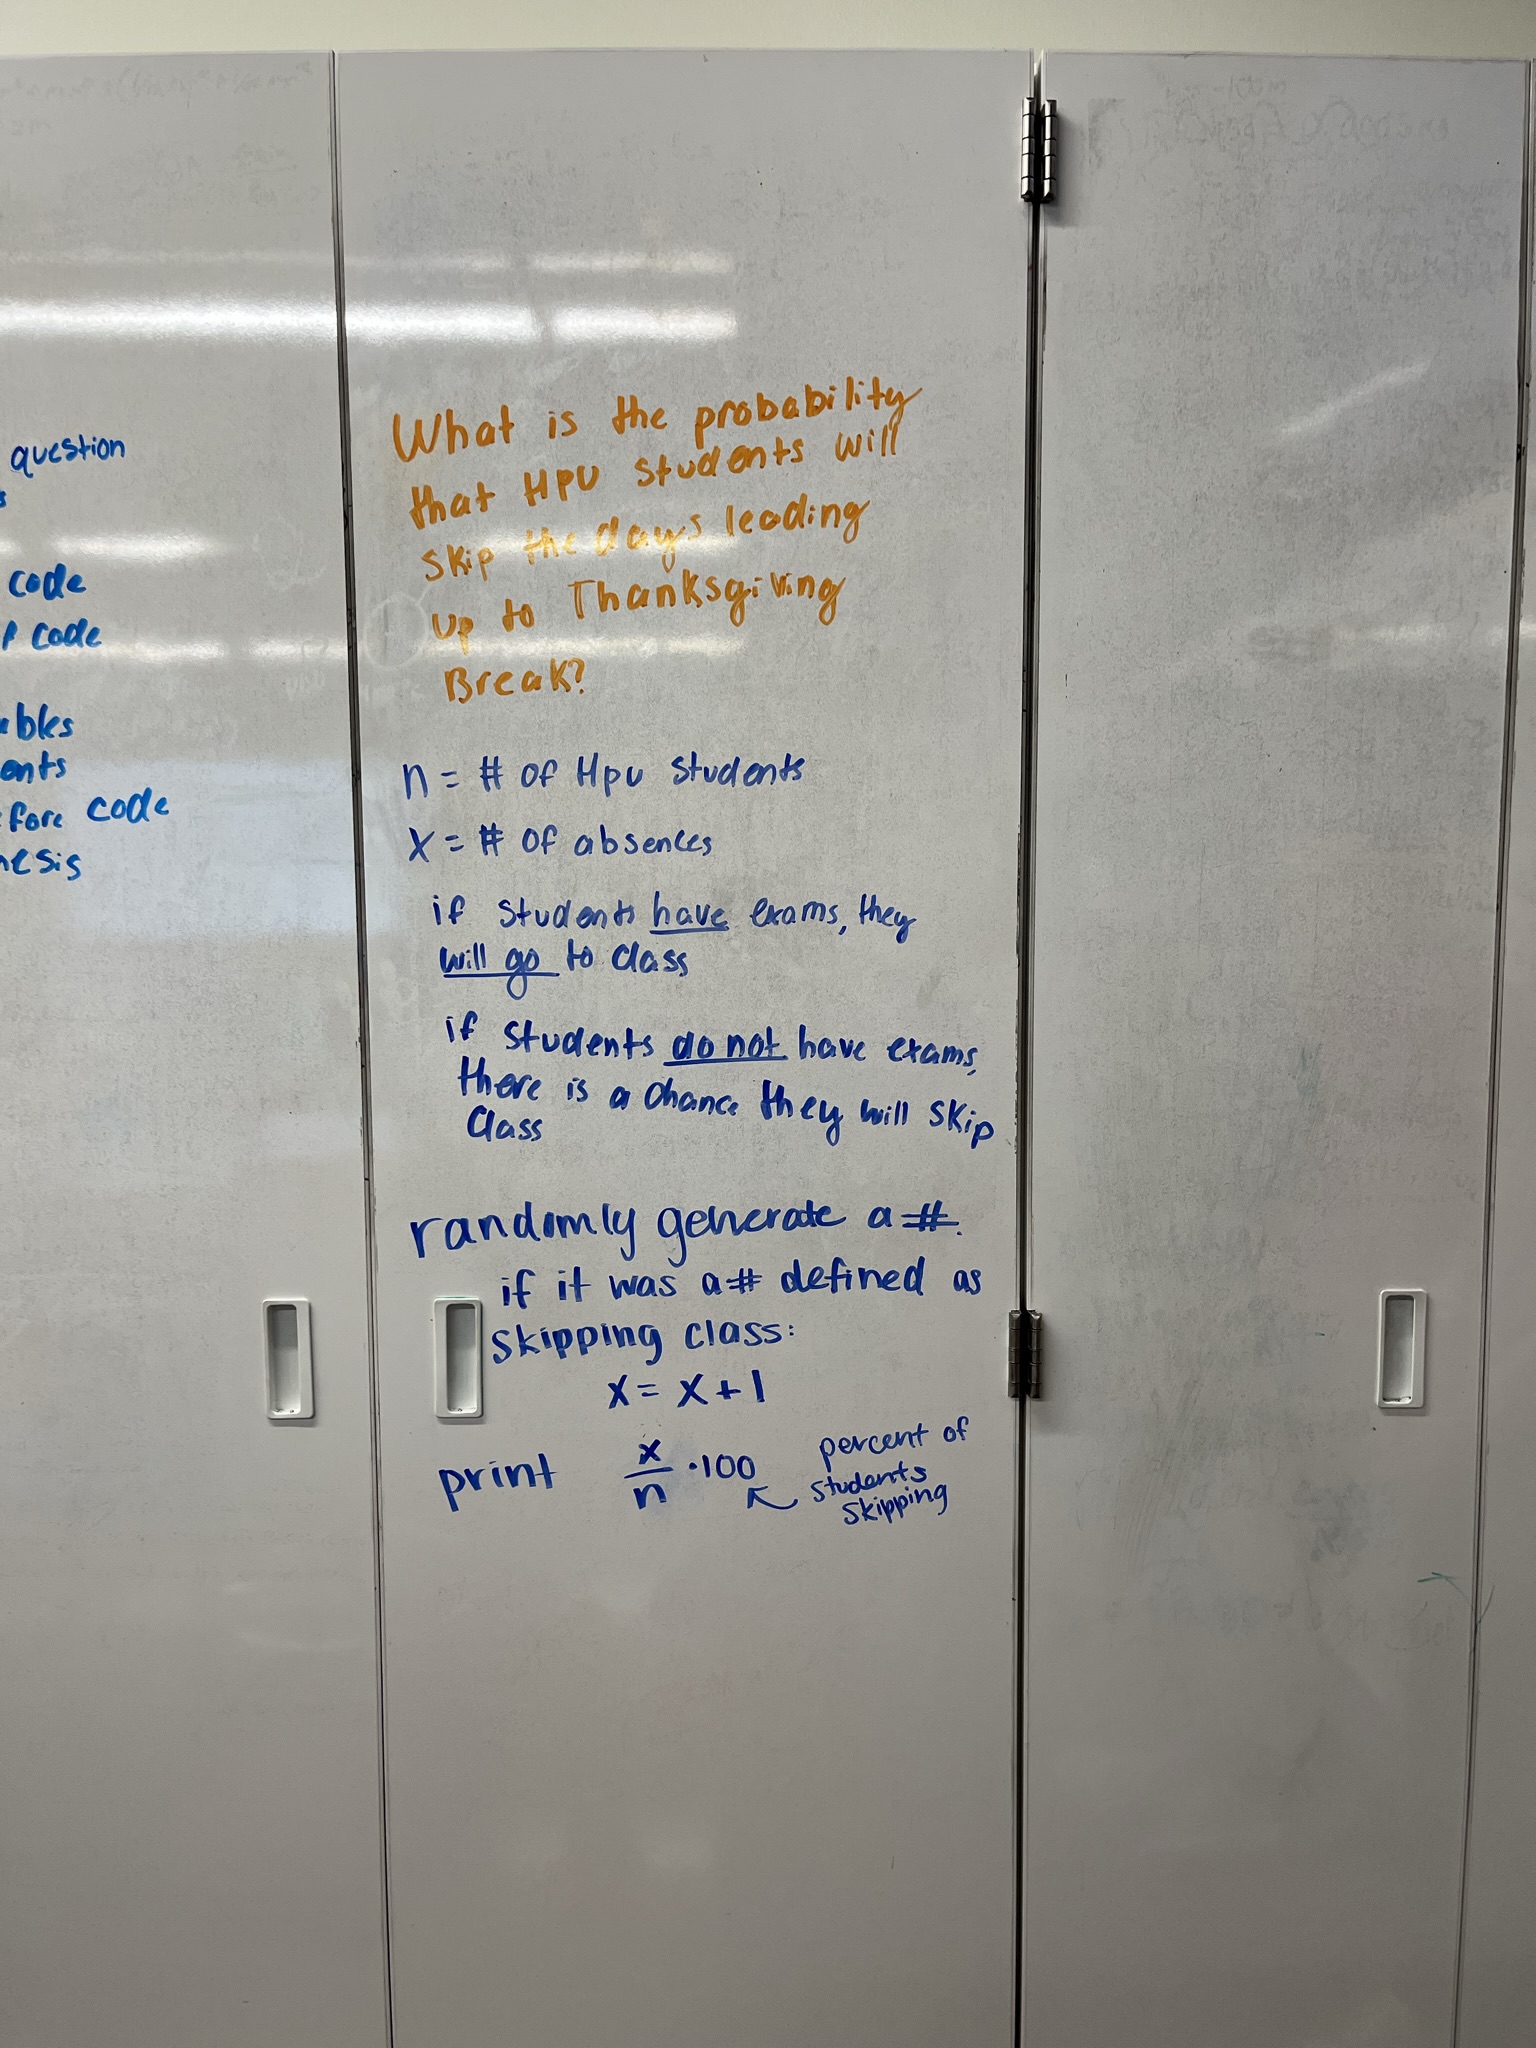 question
code
code
What is the probability
that HPU students will
skip the days leading
up to Thanksgiving
Break?
n = # of HPU students
x = # of absences
if students have exams, they
will go to class
if students do not have exams,
there is a chance they will skip
class
randomly generate a #.
if it was a # defined as
skipping class:
x = x + 1
print x/n · 100
percent of
students
skipping
code